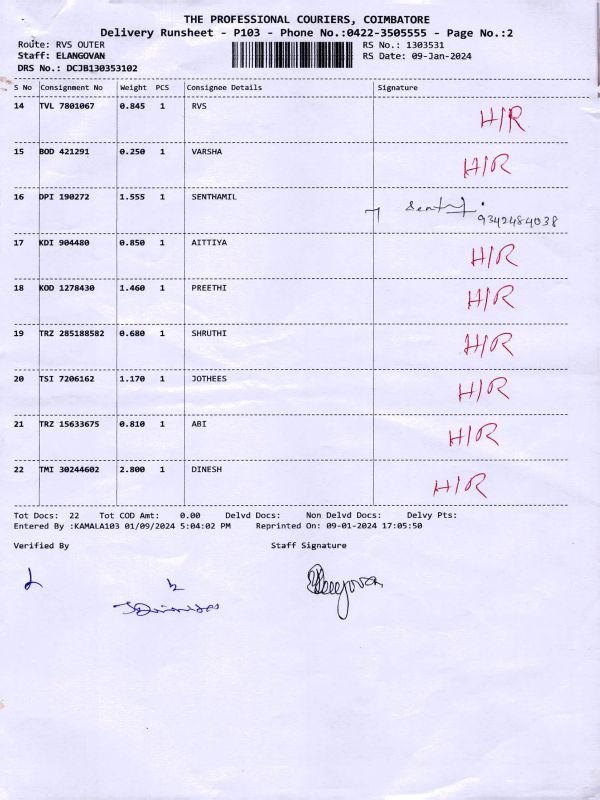 THE PROFESSIONAL COURIERS, COIMBATORE
Delivery Runsheet - P103 - Phone No.:0422-3505555 - Page No.:2
Route: RVS OUTER RS No.: 1303531
Staff: ELANGOVAN RS Date: 09-Jan-2024
DRS No.: DCJB130353102
S No Consignment No Weight PCS Consignee Details Signature
14 TVL 7801067 0.845 1 RVS H/R
15 BOD 421291 0.250 1 VARSHA H/R
16 DPI 190272 1.555 1 SENTHAMIL 9342484038
17 KDI 904480 0.850 1 AITTIYA H/R
18 KOD 1278430 1.460 1 PREETHI H/R
19 TRZ 285188582 0.680 1 SHRUTHI H/R
20 TSI 7206162 1.170 1 JOTHEES H/R
21 TRZ 15633675 0.810 1 ABI H/R
22 TMI 30244602 2.800 1 DINESH H/R
Tot Docs: 22 Tot COD Amt: 0.00 Delvd Docs: Non Delvd Docs: Delvy Pts:
Entered By :KAMALA103 01/09/2024 5:04:02 PM Reprinted On: 09-01-2024 17:05:50
Verified By Staff Signature